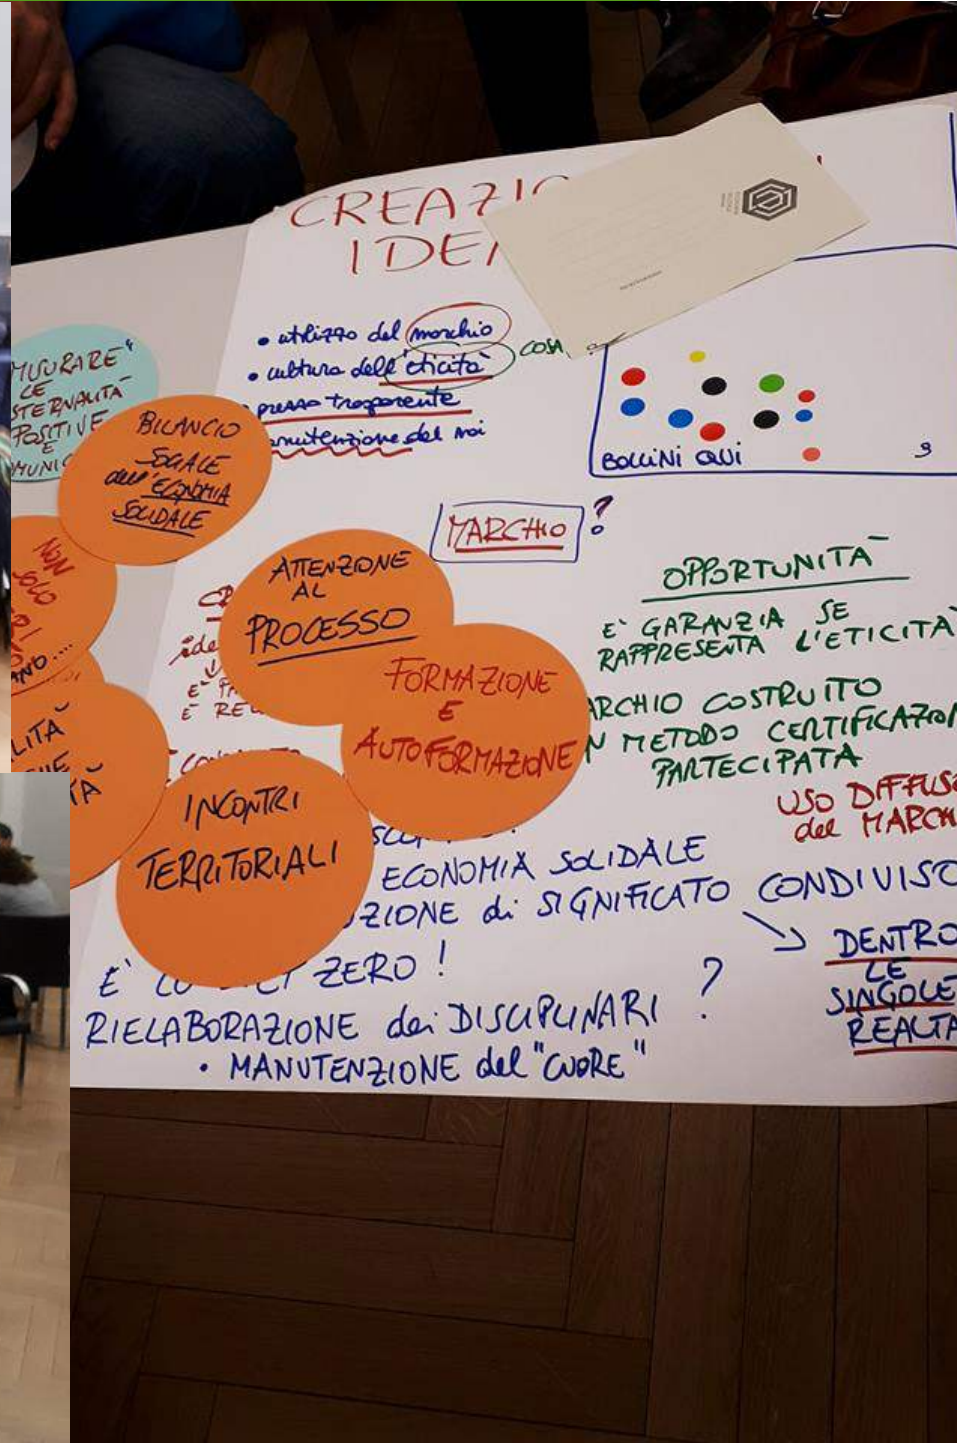 CREAZIO
IDEN
• utilizzo del marchio
• cultura dell'eticità
COSA
prezzo trasparente
anutenzione del noi
BOLLINI QUI
MISURARE
LE
STERNALITÀ
POSITIVE
E
MUNIC
BILANCIO
SOCIALE
dell'ECONOMIA
SOLIDALE
NON
SOLO
MARCHIO ?
ATTENZIONE
AL
PROCESSO
FORMAZIONE
E
AUTOFORMAZIONE
INCONTRI
TERRITORIALI
LITÀ
TÀ
ide
E' FA
E' RE
OPPORTUNITÀ
E' GARANZIA SE
RAPPRESENTA L'ETICITÀ
ARCHIO COSTRUITO
N METODO CERTIFICAZION
PARTECIPATA
USO DIFFUSO
del MARCH
ECONOMIA SOLIDALE
ZIONE di SIGNIFICATO CONDIVISO
DENTRO
LE
SINGOLE
REALTA
ZERO !
RIELABORAZIONE dei DISCIPLINARI ?
• MANUTENZIONE del "CUORE"